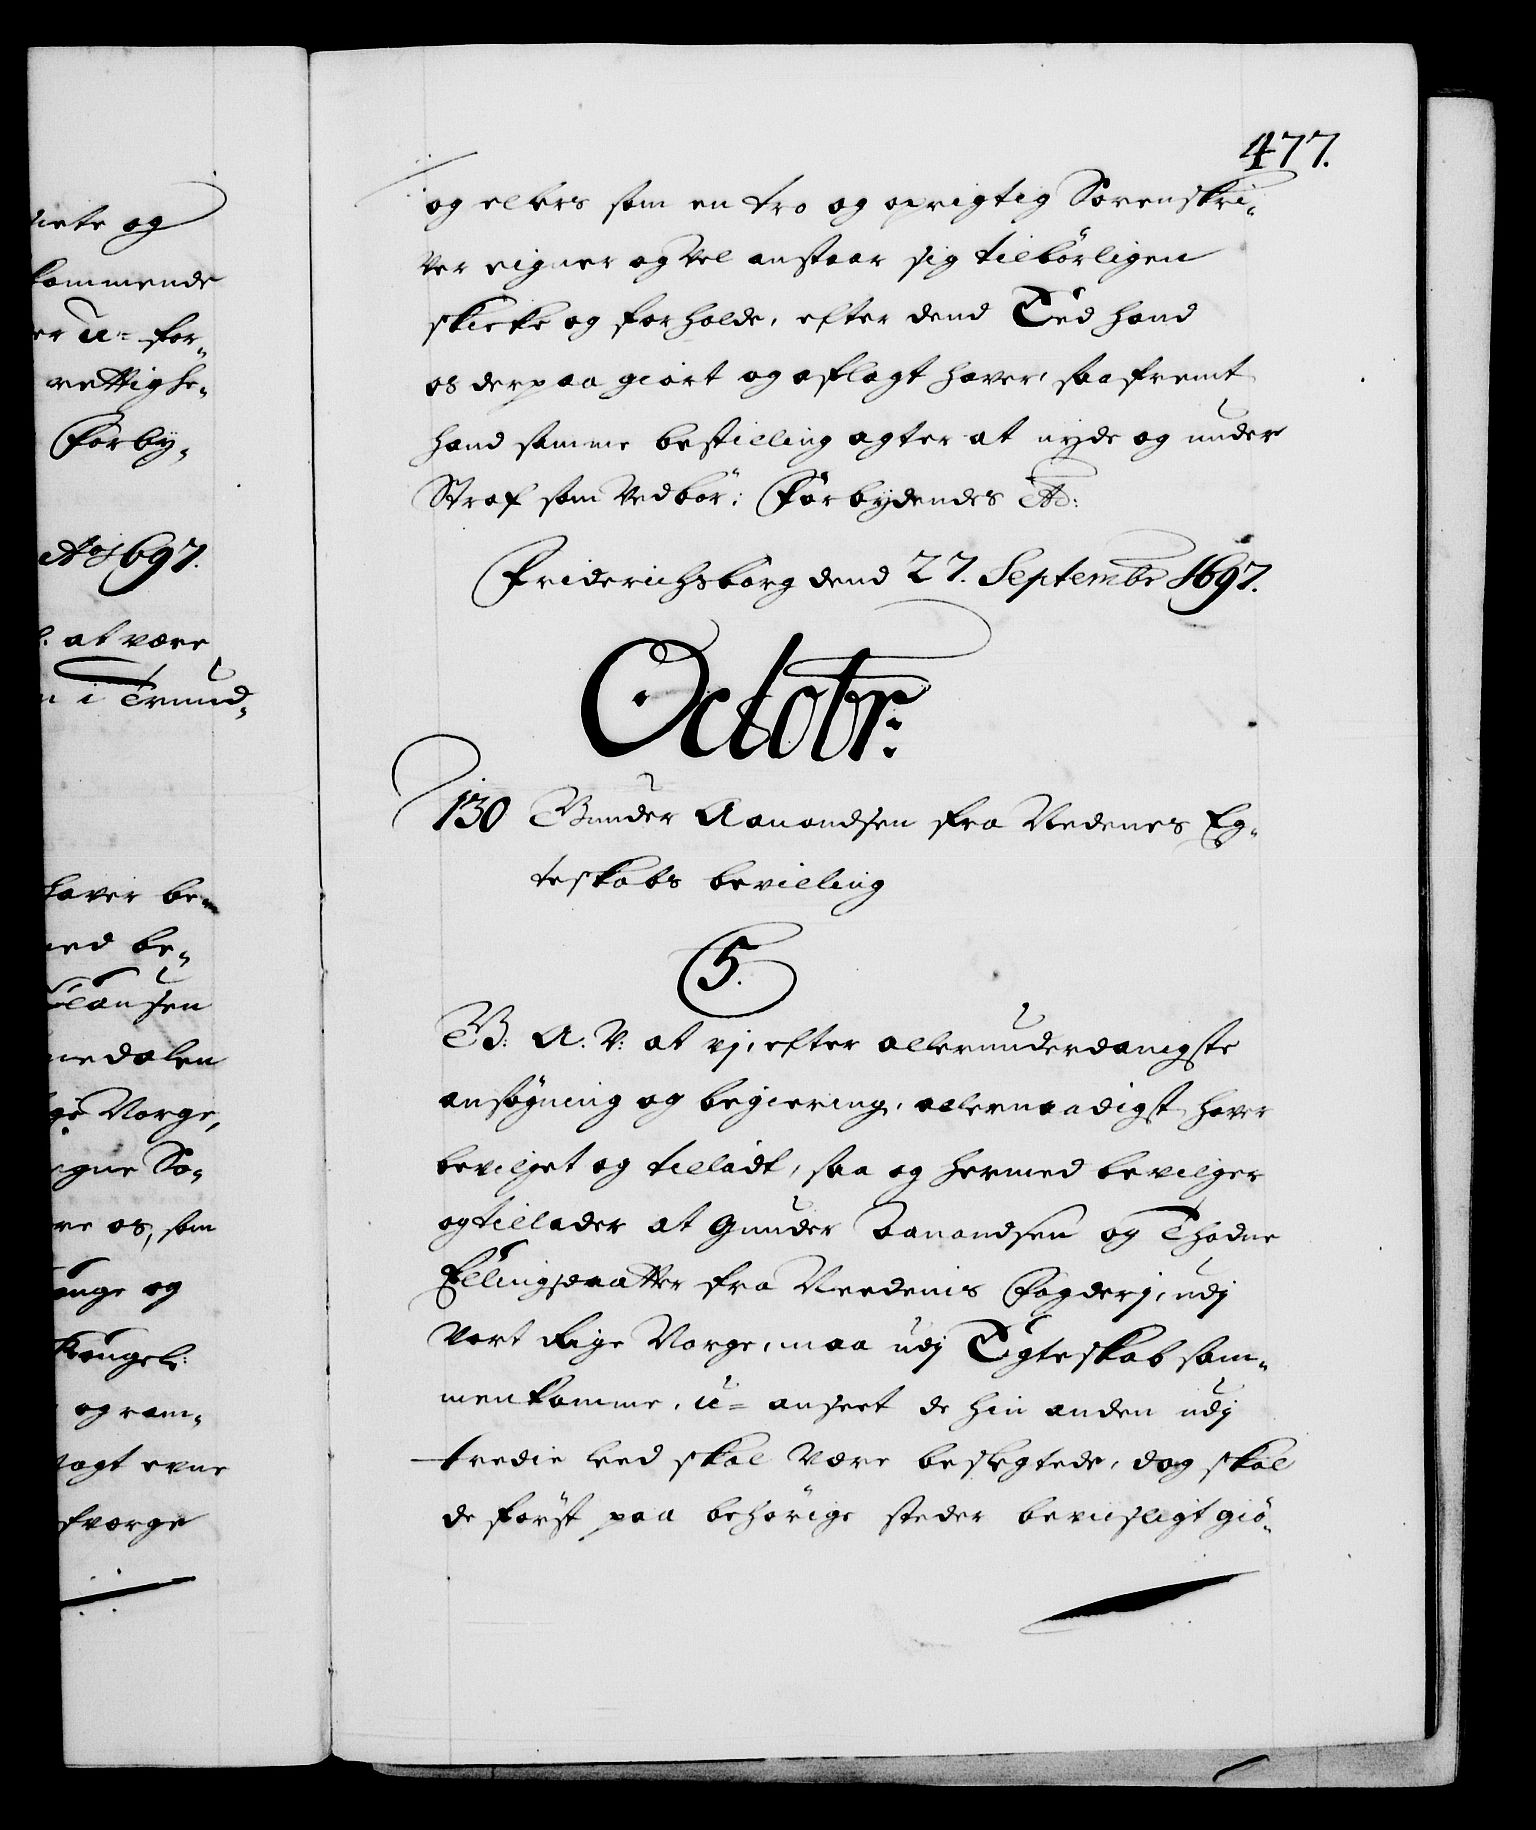 477.
og ellers som en tro og oprigtig Sorenskri-
ver eigner og vel anstaar sig tilbörligen
skicke og forholde, efter dend Eed hand
os derpaa giort og aflagt haver, saafremt
hand samme bestilling agter at nyde og under
Straf som vedbör; Forbydendes
Friderichsborg dend 27. Septembr 1697.
Octobr:
130 Gunder Aanondsen fra Nedenes Eg-
teskabs bevilling
5.
G: A. V: at vj, efter allerunderdanigste
ansögning og begiering, allernaadigst haver
bevilget og tilladt, saa og hermed bevilger
og tillader at Gunder Aanondsen og Thodne
Ellingsdaatter fra Needenis Fogderj, udj
Vort Rige Norge, maa udj Egteskab sam-
menkomme, u= anseet de hin anden udj
tredie leed skal være beslegtede, dog skal
de först paa behörige steder bevisligt giö-
iete og
kommende
er u= for-
rettighe-
Forby-
Ao 1697.
l. at være
n i Trund-
haver be-
ned be-
Clausen
medalen
ge Norge,
igne So-
re os, som
ange og
Kongel:
og ram-
agt evne
afværge